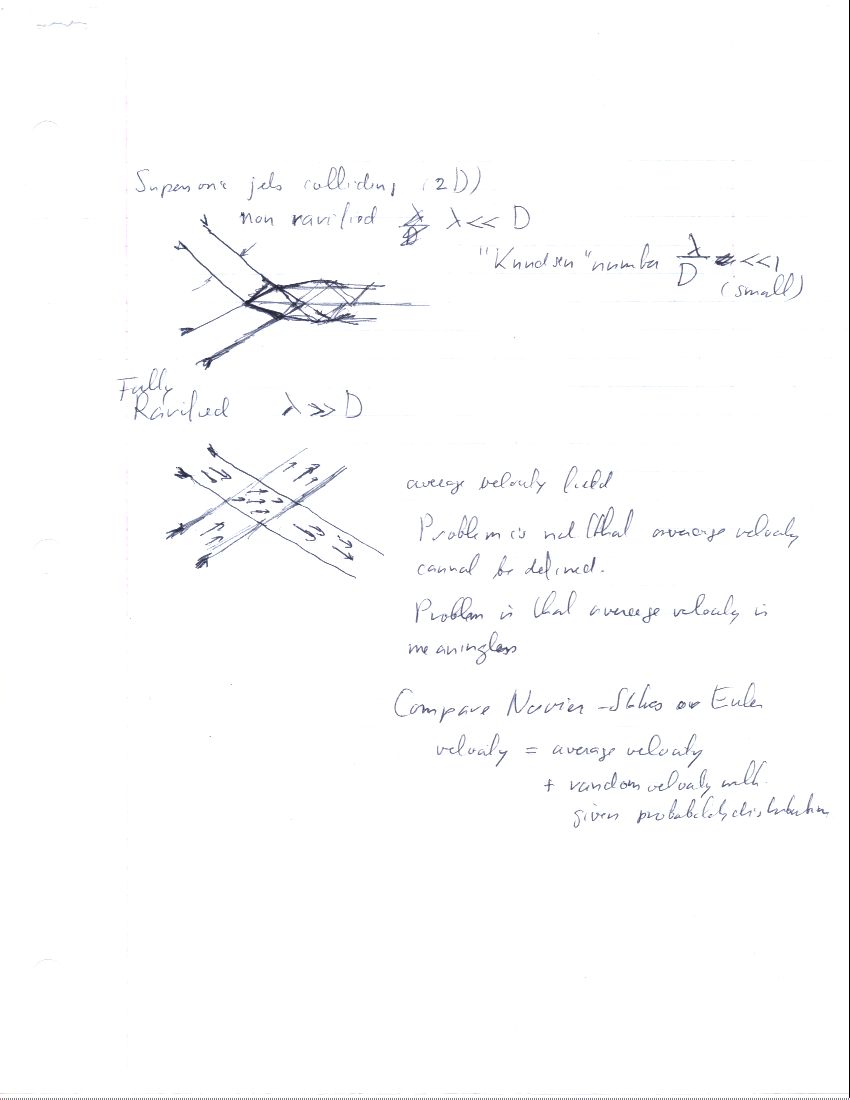 Supersonic jets colliding (2D)
non rarified λ << D
"Knudsen" number λ/D <<1
(small)
Fully
Rarified λ >> D
average velocity field
Problem is not that average velocity
cannot be defined.
Problem is that average velocity is
meaningless
Compare Navier-Stokes or Euler
velocity = average velocity
+ random velocity with
given probability distribution